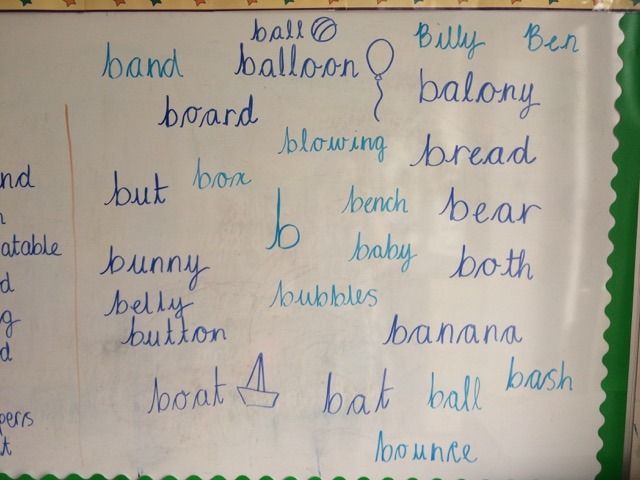 ball
Billy Ben
band balloon
balony
board
blowing
bread
nd
but box
bench bear
b
atable
baby both
bunny
d
belly bubbles
g
button banana
d
boat bat ball bash
pers
t
bounce